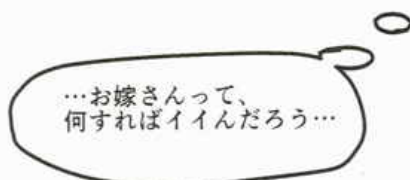 …お嫁さんって、
何すればイイんだろう…